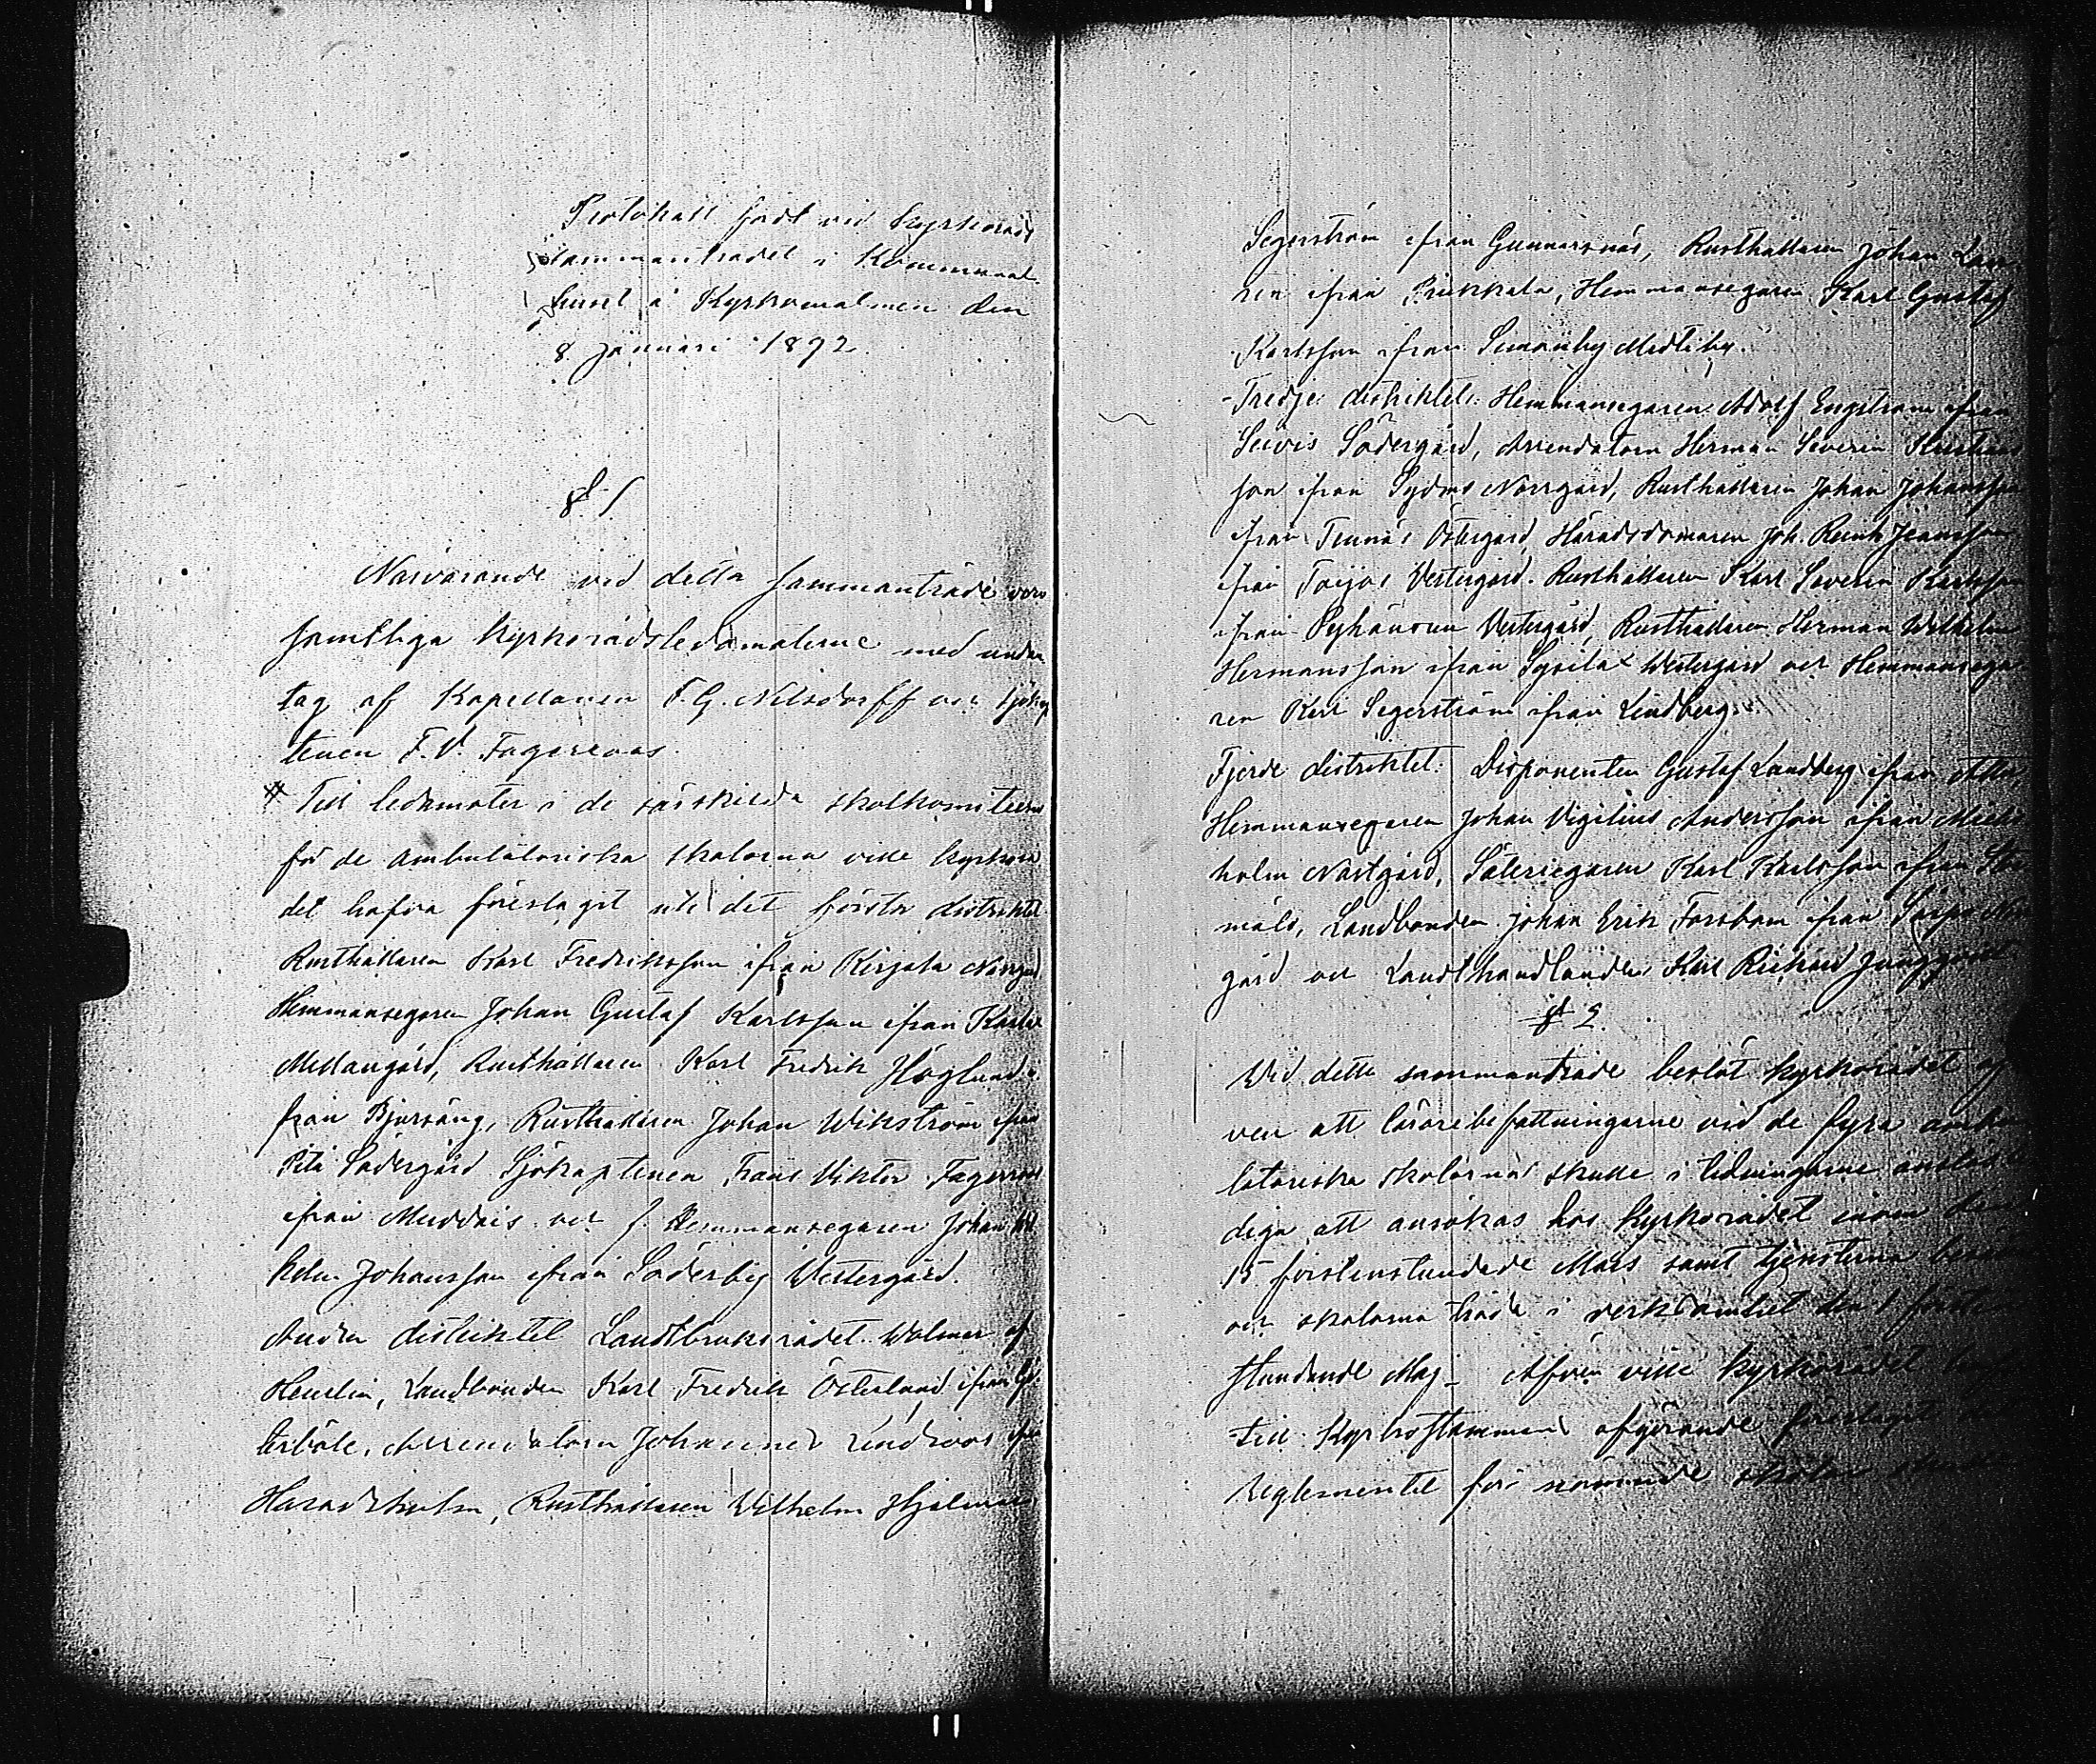 Protokoll fördt vid kyrkoråds
sammanträdet i Kommunal
huset å Kyrkomalmen den
8. Januari 1892
§ 1
Närvarande vid detta sammanträde voro
samtliga kyrkorådsledamöterne med undan
tag af Kapellanen F. G. Nilsdorff och sjökap
tenen F. V. Fageroos
Till ledamöter i de särskilda skolkomiteerna
för de ambulatoriska skolorna ville kyrkorå
det hafva föreslagit uti det första distriktet
Rusthållaren Karl Fredriksson ifrån Kirjala Norrgård
Hemmansegaren Johan Gustaf Karlsson ifrån
Mellangård, Rusthållaren Karl Fredrik Höglund i
från Bjursäng, Rusthållaren Johan Wikström ifrån
Södergård Sjökaptenen Frans Viktor Fageroos
ifrån Muddais och f. Hemmansegaren Johan Wil
helm Johansson ifrån Söderby Westergård.
Andra distriktet Landtbruksrådet Wolmar af
Heurlin, Landbonden Karl Fredrik Österlund ifrån
Arrendatorn Johannes Lindroos ifrån
Haradsholm, Rusthållaren Wilhelm Hjalmar
Segerström ifrån Gunnarsnäs, Rusthållaren Johan
ren ifrån Hemmansegaren Karl Gustaf
Karlsson ifrån Simonby Medtiby.
Tredje distriktet: Hemmansegaren Adolf Engström ifrån
Södergård, Arrendatorn Herman Severin Kristians
son ifrån Sydmo Norrgård, Rusthållaren Johan Johansson
ifrån Tennäs Östergård, Häradsdomaren Joh. Reinh. Jeansson
ifrån Toijos Westergård. Rusthållaren Karl Severin Karlsson
ifrån Pexhänsuu Westergård, Rusthållaren Herman Wilhelm
Hermansson ifrån Sysilax Westergård och Hemmansega
ren Karl Segerström ifrån Lindberg.
Fjerde distriktet: Disponenten Gustaf Landberg ifrån
Hemmansegaren Johan Vigilius Andersson ifrån
holm Norrgård, Säteriegaren Karl Karlsson ifrån
Landbonden Johan Erik Forsbom ifrån
gård och Landthandlanden Karl Richard Jungqvist.
§ 2.
Vid detta sammanträde beslöt kyrkorådet äf
ven att lärarebefattningarne vid de fyra ambu
latoriska skolorna skulle i tidningarne anslås le
diga att ansökas hos Kyrkorådet inom den
15 förstinstundade Mars samt tjensterna
och skolorna träda i verksamhet den 1 förstin
stundande Maj. Afven ville kyrkorådet
till Kyrkostämmans afgörande föreslagit
Reglementet för nämnde skolor